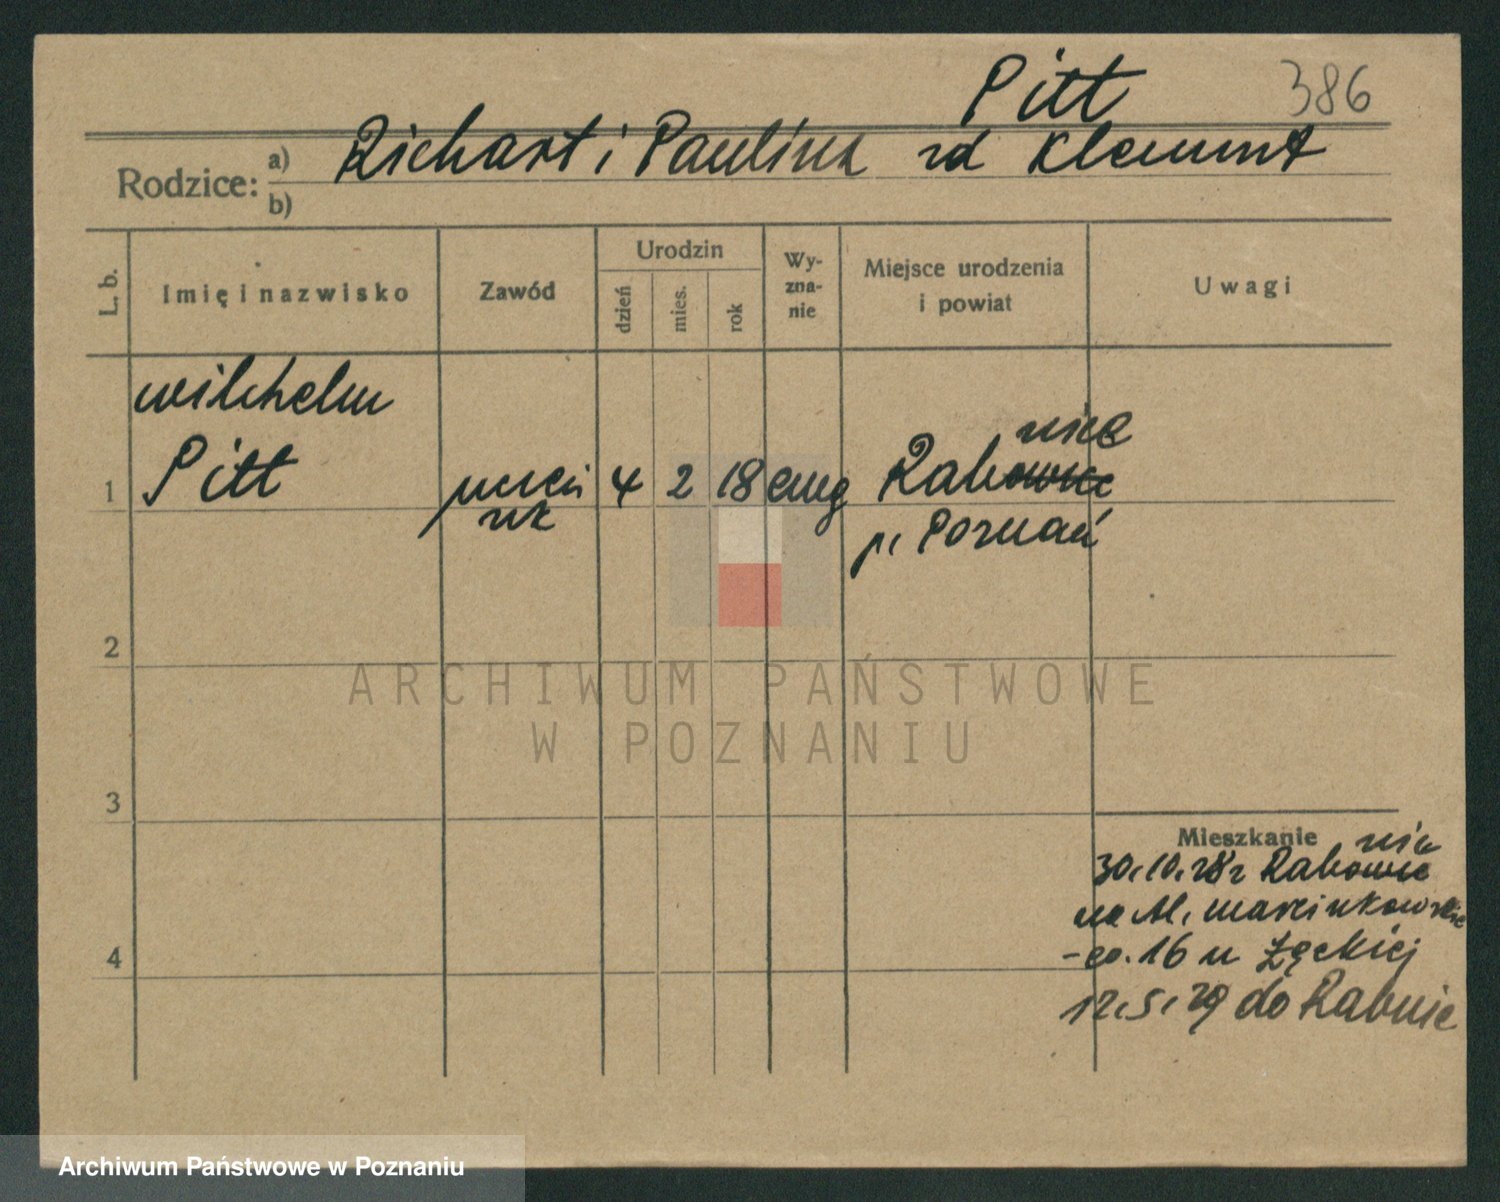 Pitt 386
Rodzice: a) Richart i Paulina zd Klemmt
b)
L. b. Imię i nazwisko Zawód Urodzin dzień mies. rok Wy-zna-nie Miejsce urodzenia i powiat Uwagi
Wilchelm
nice
1 Pitt 4 2 18 ewg Rabowice
p. Poznań
2
ARCHIWUM PAŃSTWOWE
W POZNANIU
3
Mieszkanie
30.10.28 r Rabowic
na M. Marcinkowskie
-go. 16 u Łęckiej
4
12.5.29 do Rabnic
Archiwum Państwowe w Poznaniu